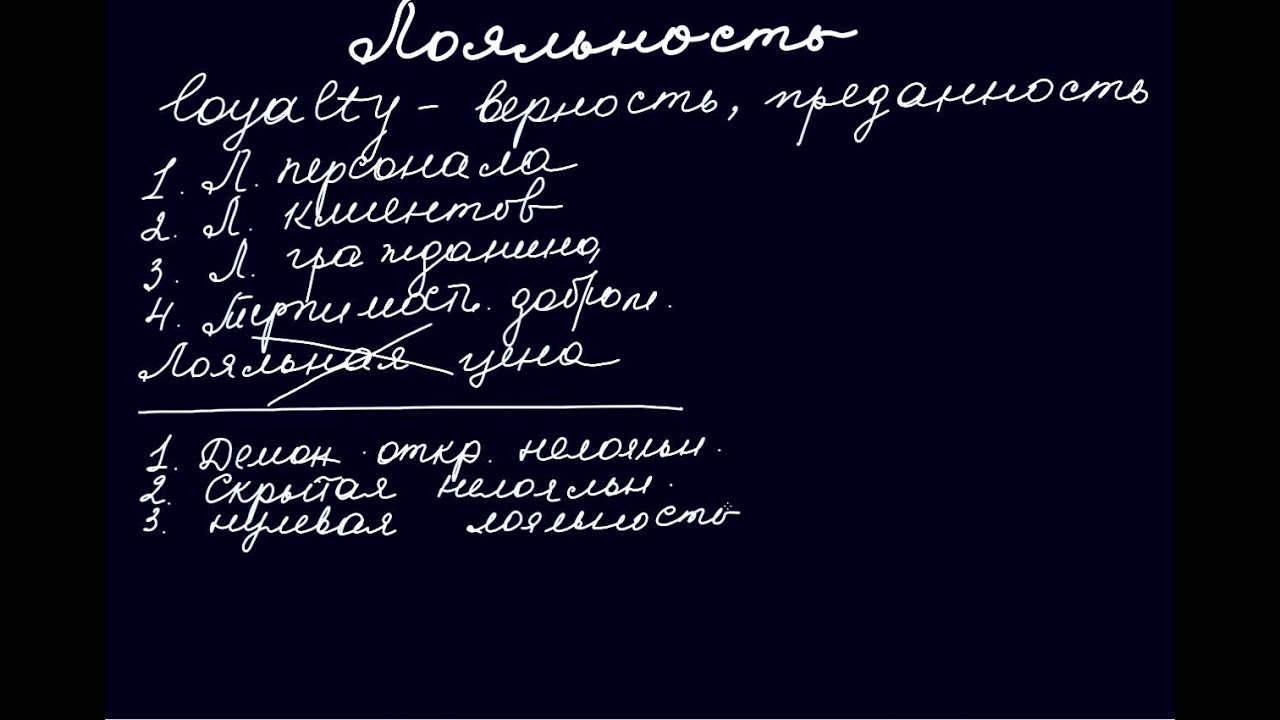 Лояльность
loyalty - верность, преданность
1. Л. персонала
2. Л. клиентов
3. Л. гражданина
4. Терпимость. доброж.
Лояльная цена
1. Демон. откр. нелояльн.
2. Скрытая нелояльн.
3. нулевая лояльность